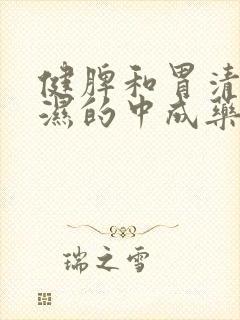 健脾和胃清
濕的中成藥
瑞之雪